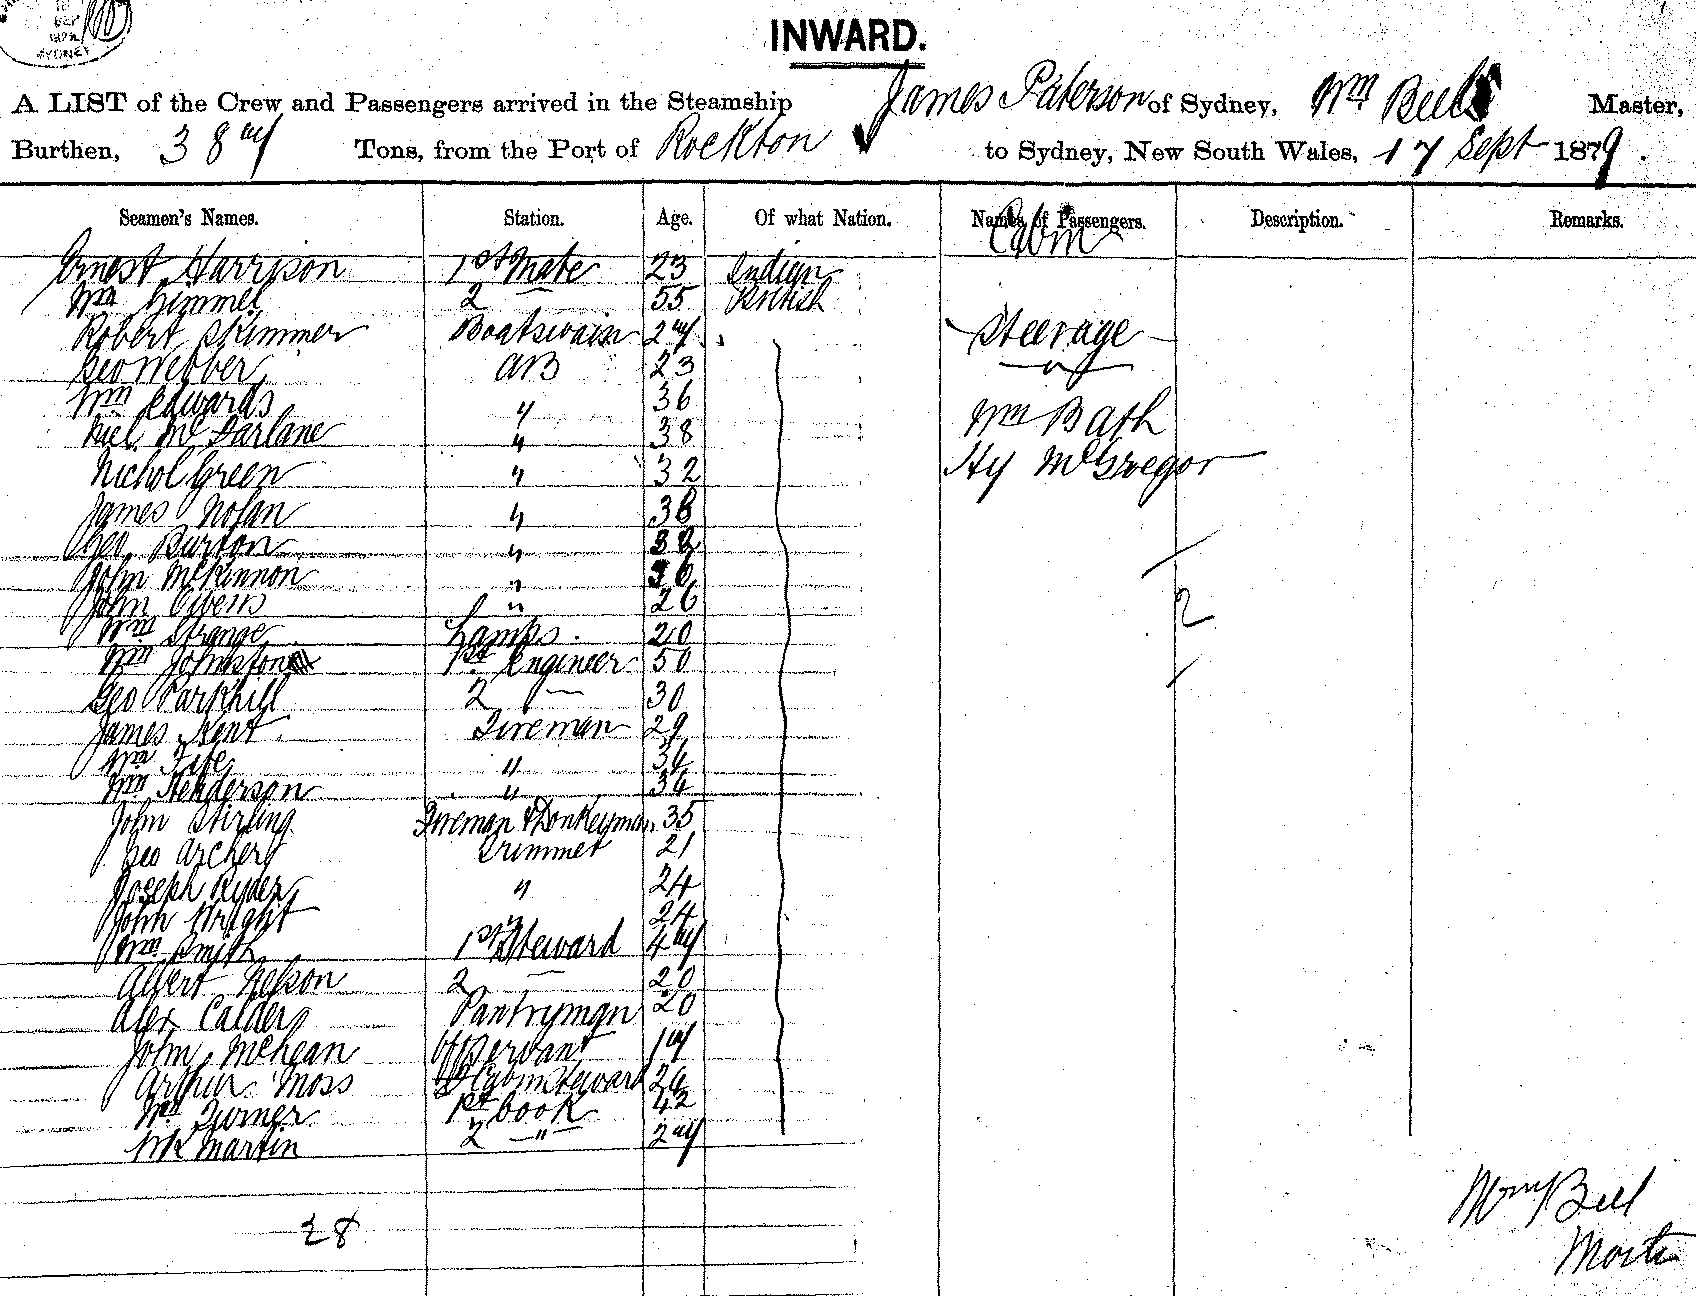 SYDNEY
INWARD.
A LIST of the Crew and Passengers arrived in the Steamship James Paterson of Sydney, Wm Bell Master,
Burthen, 387 Tons, from the Port of Rockton to Sydney, New South Wales, 17 Sept 1879.
Seamen's Names. Station. Age. Of what Nation. Names of Passengers. Description. Remarks.
Cabin
Ernest Harrison 1st Mate 23 Indian
Wm Gimmel 2 — 55 British
Robert Skimmer Boatswain 27 Steerage
Geo Webber AB 23
Wm Edwards " 36 Wm Bath
Niel McFarlane " 38
Nichol Green " 32 Hy McGregor
James Nolan " 38
Geo Burton "
John McKinnon "
John Owens " 26 2
Wm Strange Lamps. 20
Wm Johnston 1st Engineer 50
Geo Parkhill 2 — 30
James Kent Fireman 29
Wm Fife " 34
Wm Henderson " 34
John Stirling Fireman & Donkeyman 35
Geo Archer Trimmer 21
Joseph Ryder " 24
John Wright " 24
Wm Smith 1st Steward 47
Albert Nelson 2 — 20
Alex Calder Pantryman 20
John McLean Servant 17
Arthur Moss Cabin Steward
Wm Turner 1st Cook 42
Wm Martin 2 — " — 27
28
Wm Bell
Master